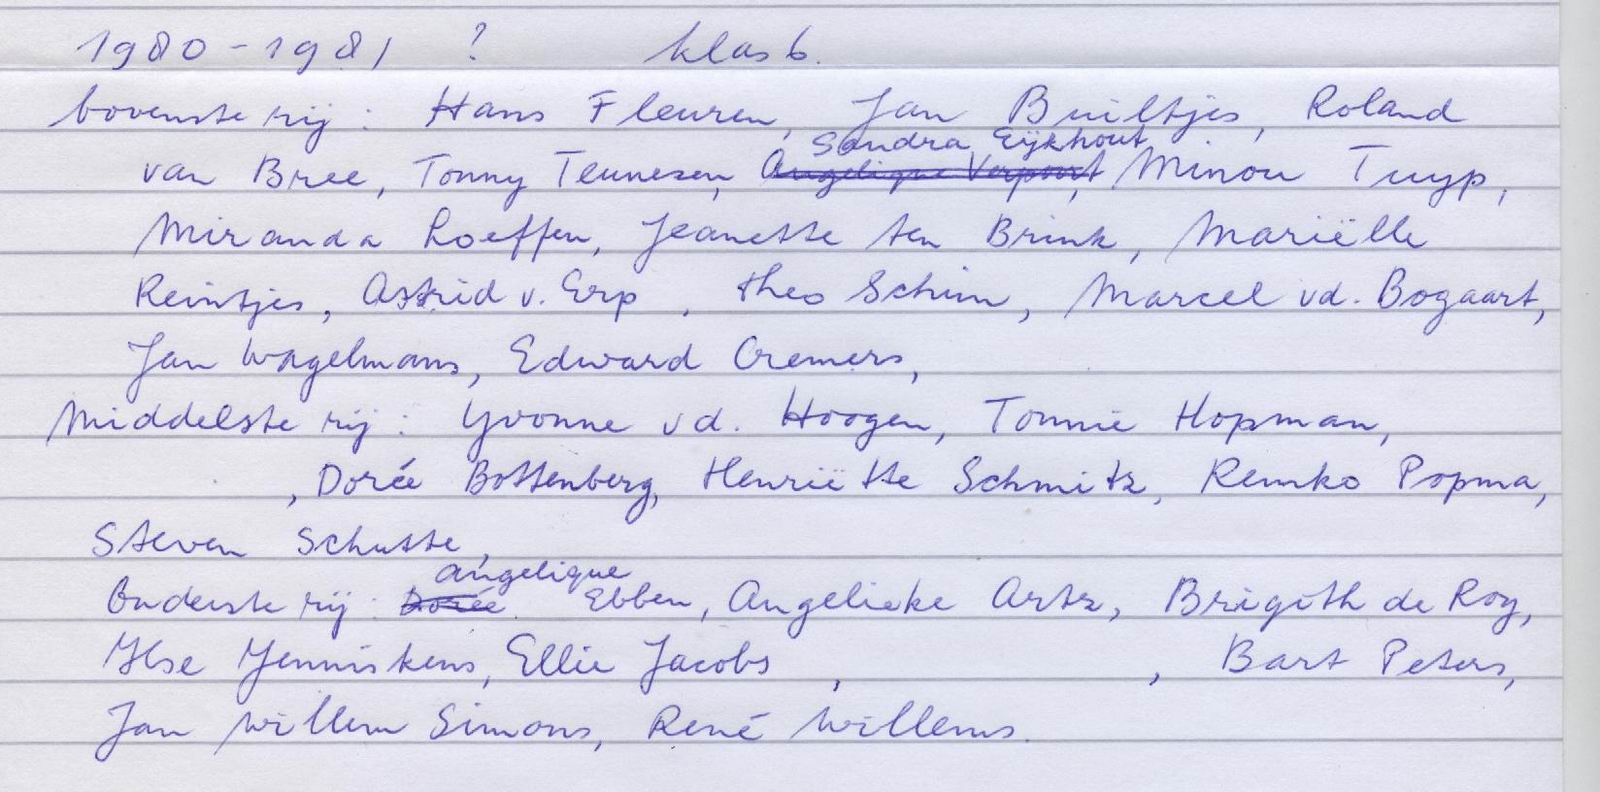 1980 - 1981 ? klas 6.
bovenste rij: Hans Fleuren, Jan Builtjes, Roland
Sandra Eijkhout
van Bree, Tonny Teunesen, Angelique Verpoort, Minou Tuyp,
Miranda Loeffen, Jeanette ten Brink, Mariëlle
Reintjes, Astrid v. Erp, Theo Schim, Marcel vd. Bogaart,
Jan Wagelmans, Edward Cremers,
Middelste rij: Yvonne vd. Hoogen, Tonnie Hopman,
, Dorée Bottenberg, Henriëtte Schmitz, Remko Popma,
Steven Schutte,
angelique
Onderste rij: Dorée Ebben, Angelieke Artz, Brigith de Roy,
Ilse Jenniskens, Ellie Jacobs , , Bart Peters,
Jan Willem Simons, René Willems.